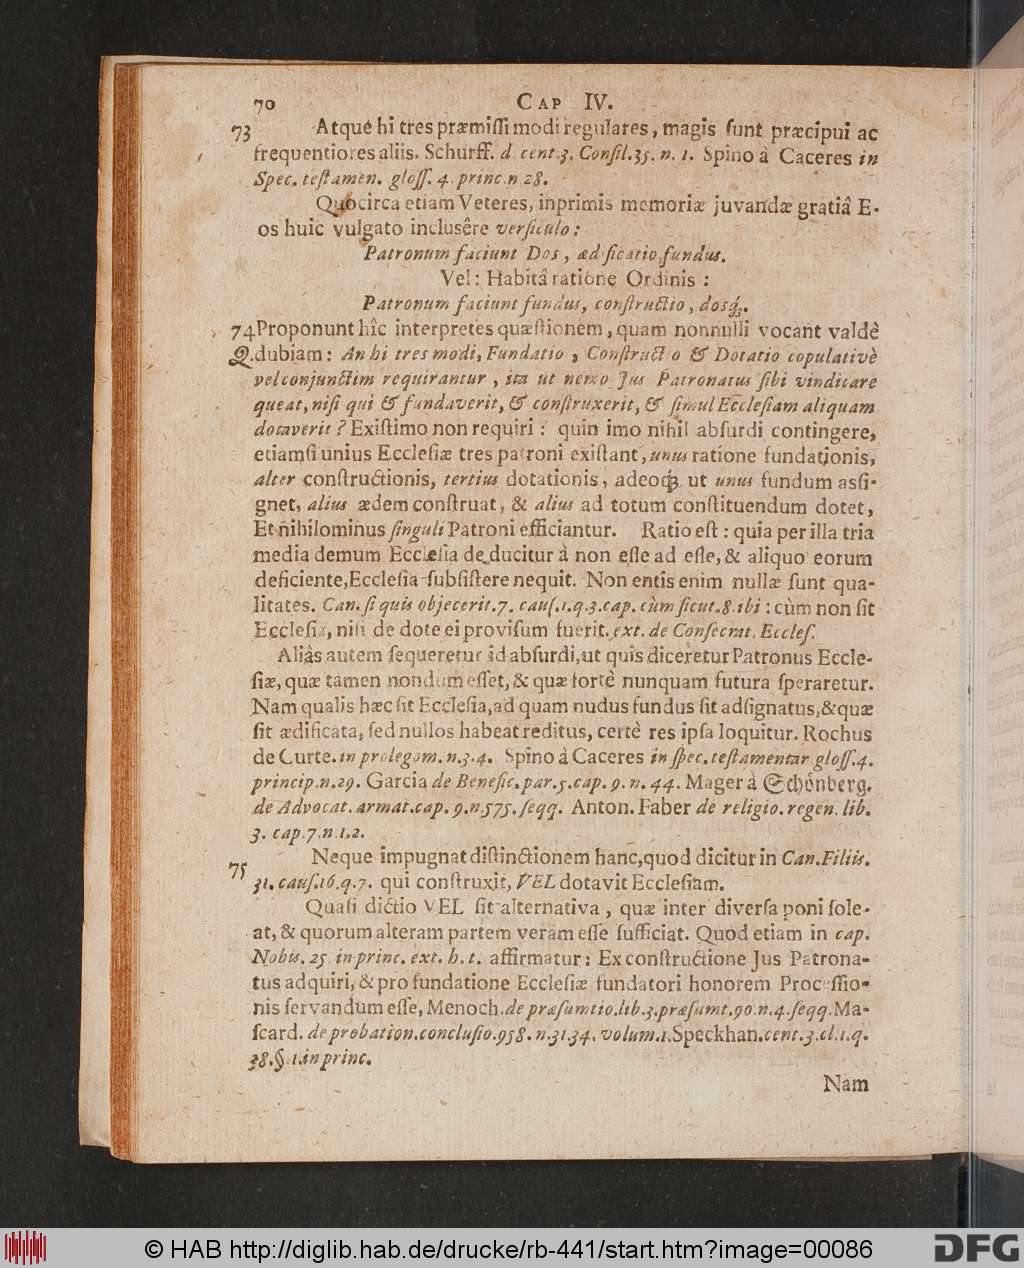 70 CAP IV.
73 Atque hi tres præmiſſi modi regulares, magis ſunt præcipui ac
frequentiores aliis. Schurff. d. cent. 3. Conſil. 35. n. 1. Spino à Caceres in
Spec. teſtamen. gloſſ. 4. princ. n 28.
Quocirca etiam Veteres, inprimis memoriæ juvandæ gratiâ E-
os huic vulgato incluſêre verſiculo:
Patronum faciunt Dos, ædificatio, fundus.
Vel: Habitâ ratione Ordinis:
Patronum faciunt fundus, conſtructio, dosq́;.
74 Proponunt hîc interpretes quæſtionem, quam nonnulli vocant valdè
Q. dubiam: An hi tres modi, Fundatio, Conſtructio & Dotatio copulativè
vel conjunctim requirantur, ita ut nemo Jus Patronatus ſibi vindicare
queat, niſi qui & fundaverit, & conſtruxerit, & ſimul Eccleſiam aliquam
dotaverit? Exiſtimo non requiri: quin imo nihil abſurdi contingere,
etiamſi unius Eccleſiæ tres patroni exiſtant, unus ratione fundationis,
alter conſtructionis, tertius dotationis, adeoq́; ut unus fundum aſſi-
gnet, alius ædem conſtruat, & alius ad totum conſtituendum dotet,
Et nihilominus ſinguli Patroni efficiantur. Ratio eſt: quia per illa tria
media demum Eccleſia deducitur à non eſſe ad eſſe, & aliquo eorum
deficiente, Eccleſia ſubſiſtere nequit. Non entis enim nullæ ſunt qua-
litates. Can. ſi quis objecerit. 7. cauſ. 1. q. 3. cap. cùm ſicut. 8. ibi: cùm non ſit
Eccleſia, niſi de dote ei proviſum fuerit. ext. de Conſecrat. Eccleſ.
Aliàs autem ſequeretur id abſurdi, ut quis diceretur Patronus Eccle-
ſiæ, quæ tamen nondum eſſet, & quæ fortè nunquam futura ſperaretur.
Nam qualis hæc ſit Eccleſia, ad quam nudus fundus ſit adſignatus, & quæ
ſit ædificata, ſed nullos habeat reditus, certè res ipſa loquitur. Rochus
de Curte. in prolegom. n. 3. 4. Spino à Caceres in ſpec. teſtamentar gloſſ. 4.
princip. n. 29. Garcia de Benefic. par. 5. cap. 9. n. 44. Mager à Schönberg.
de Advocat. armat. cap. 9. n. 575. ſeqq. Anton. Faber de religio. regen. lib.
3. cap. 7. n. 1. 2.
75 Neque impugnat diſtinctionem hanc, quod dicitur in Can. Filiis.
31. cauſ. 16. q. 7. qui conſtruxit, VEL dotavit Eccleſiam.
Quaſi dictio VEL ſit alternativa, quæ inter diverſa poni ſole-
at, & quorum alteram partem veram eſſe ſufficiat. Quod etiam in cap.
Nobis. 25. in princ. ext. h. t. affirmatur: Ex conſtructione Jus Patrona-
tus adquiri, & pro fundatione Eccleſiæ fundatori honorem Proceſſio-
nis ſervandum eſſe, Menoch. de præſumtio. lib. 3. præſumt. 90. n. 4. ſeqq. Ma-
ſcard. de probation. concluſio. 958. n. 31 34. volum. 1. Speckhan. cent. 3. cl. 1. q.
38. §. 1. in princ.
Nam
© HAB http://diglib.hab.de/drucke/rb-441/start.htm?image=00086
DFG